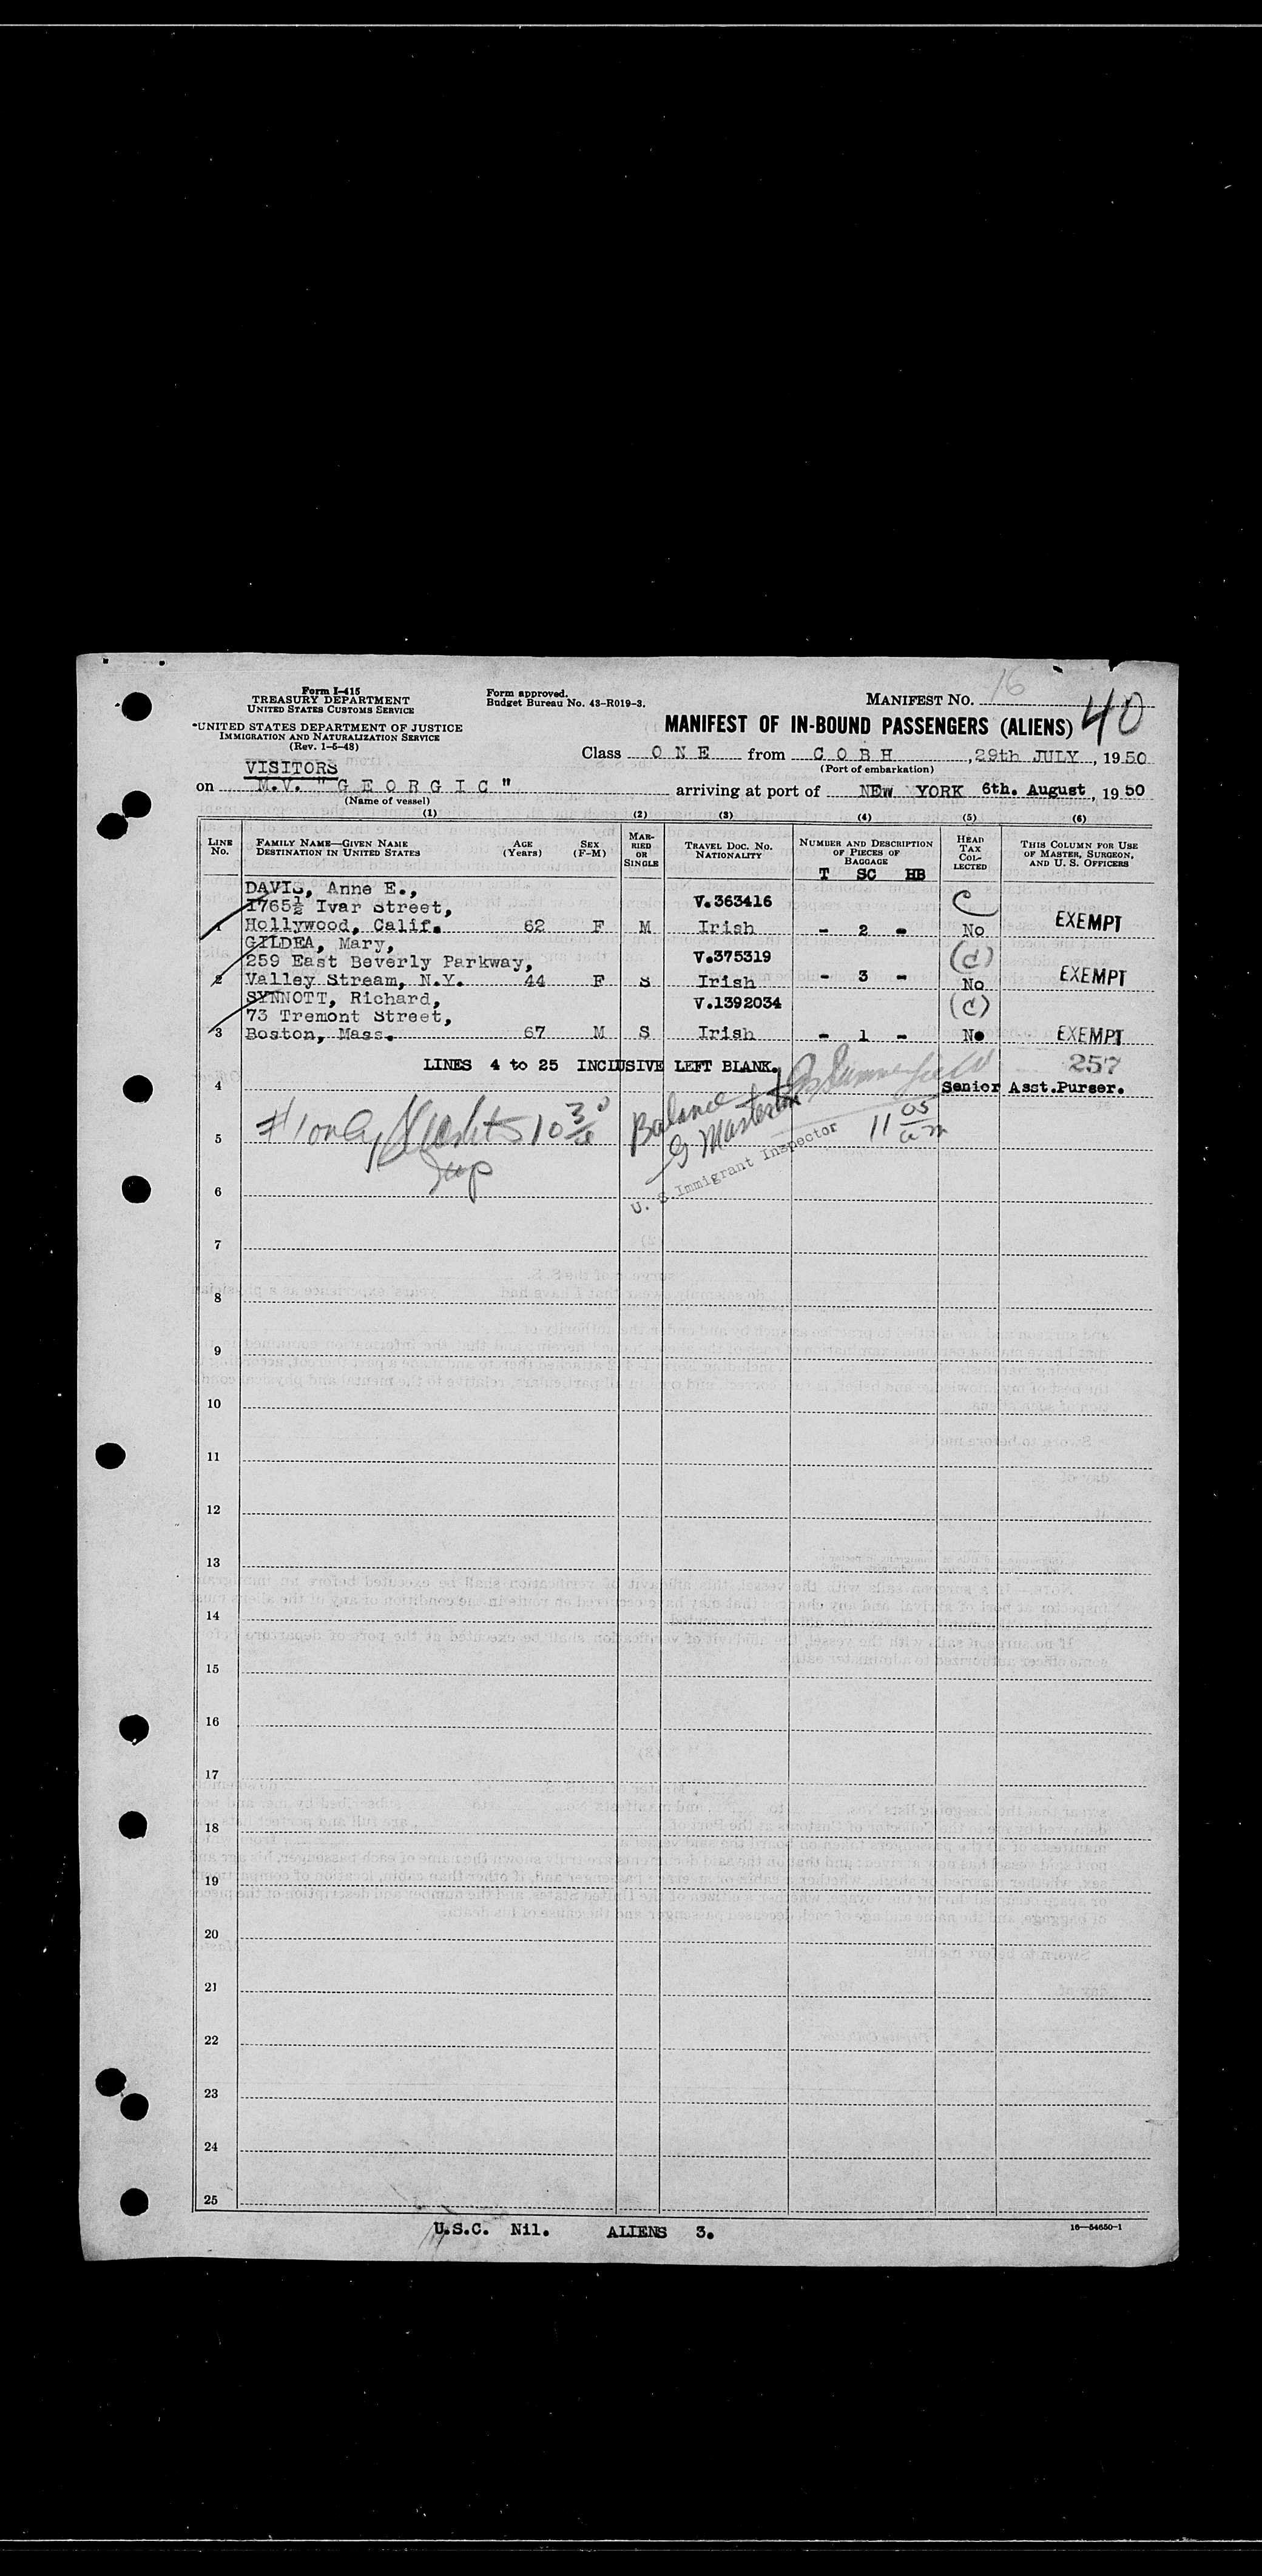 Form I-415
TREASURY DEPARTMENT
UNITED STATES CUSTOMS SERVICE
*UNITED STATES DEPARTMENT OF JUSTICE
IMMIGRATION AND NATURALIZATION SERVICE
(Rev. 1-5-48)
Form approved.
Budget Bureau No. 43-R019-3.
MANIFEST NO. 16
40
MANIFEST OF IN-BOUND PASSENGERS (ALIENS)
Class O N E from C O B H, 29th JULY, 1950
(Port of embarkation)
VISITORS
on M.V. "G E O R G I C" arriving at port of NEW YORK 6th. August, 1950
(Name of vessel)
(1) (2) (3) (4) (5) (6)
LINE NO.
FAMILY NAME—GIVEN NAME
DESTINATION IN UNITED STATES
AGE (Years)
SEX (F-M)
MARRIED OR SINGLE
TRAVEL DOC. NO.
NATIONALITY
NUMBER AND DESCRIPTION OF PIECES OF BAGGAGE
T SC HB
HEAD TAX COLLECTED
THIS COLUMN FOR USE OF MASTER, SURGEON, AND U. S. OFFICERS
DAVIS, Anne E.,
1765½ Ivar Street, V.363416 C
1 Hollywood, Calif. 62 F M Irish - 2 - No EXEMPT
GILDEA, Mary,
259 East Beverly Parkway, V.375319 (d)
2 Valley Stream, N.Y. 44 F S Irish - 3 - No EXEMPT
SYNNOTT, Richard, V.1392034 (c)
73 Tremont Street,
3 Boston, Mass. 67 M S Irish - 1 - No EXEMPT
LINES 4 to 25 INCLUSIVE LEFT BLANK. 257
4 Senior Asst.Purser.
5 #1 only 10 30 Balance 11 05 am
G Masterson
U. S. Immigrant Inspector
6
7
8
9
10
11
12
13
14
15
16
17
18
19
20
21
22
23
24
25
U.S.C. Nil. ALIENS 3.
16—54650-1